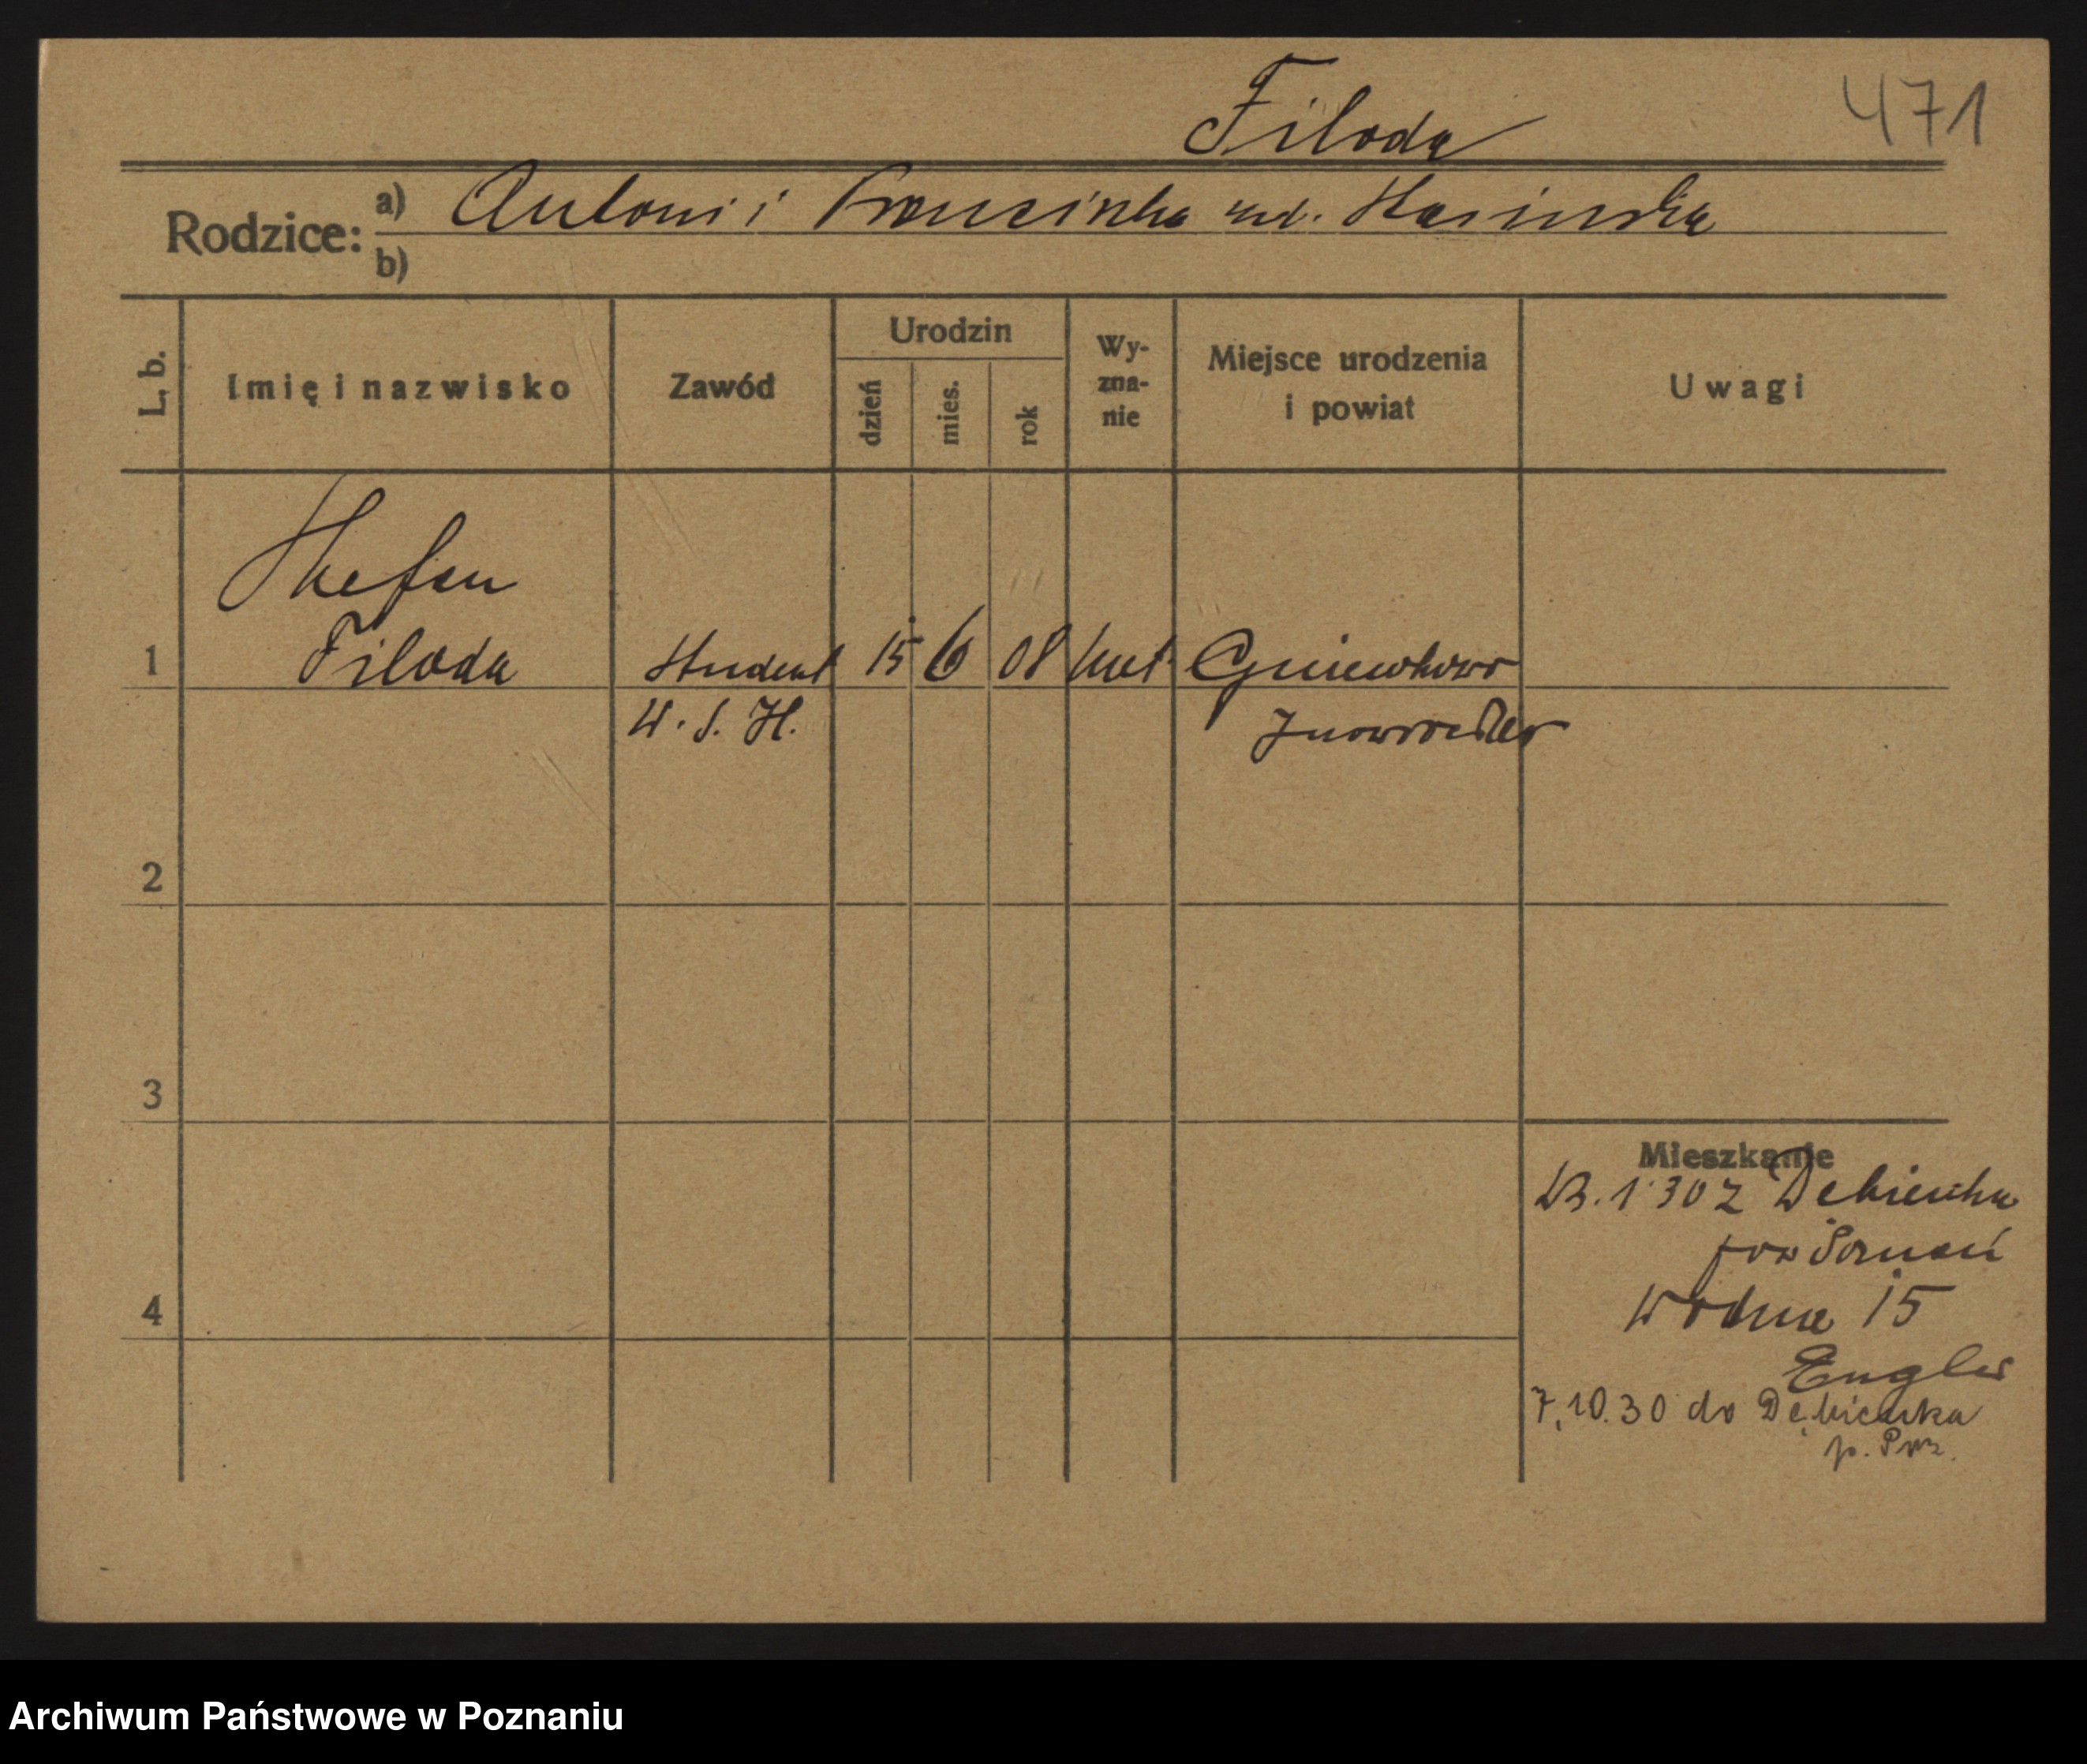 Filoda
471
Rodzice:
a) Antoni i Franciszka ur. Hasińska
b)
L. b.
Imię i nazwisko
Zawód
Urodzin
dzień
mies.
rok
Wy-
zna-
nie
Miejsce urodzenia
i powiat
Uwagi
1
Stefan
Filoda
Student
W. S. H.
15
6
08
kat.
Gniewkowo
Inowrocław
2
3
4
Mieszkanie
1 30 z Dębienka
pow Poznań
Wodna 15
Engler
7.10.30 do Dębienka
p. Poz.
Archiwum Państwowe w Poznaniu